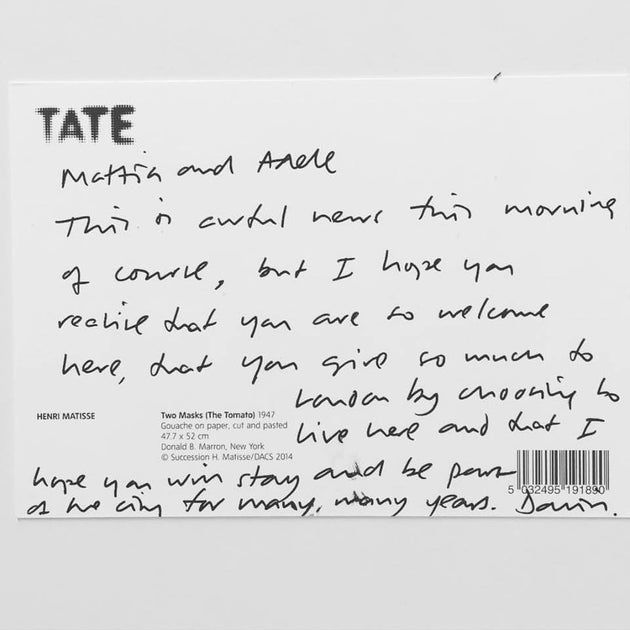 TATE
Mattia and Adele
This is awful news this morning
of course, but I hope you
realise that you are so welcome
here, that you give so much to
London by choosing to
live here and that I
hope you will stay and be part
of the city for many, many years.
HENRI MATISSE
Two Masks (The Tomato) 1947
Gouache on paper, cut and pasted
47.7 x 52 cm
Donald B. Marron, New York
© Succession H. Matisse/DACS 2014
5 032495 191890